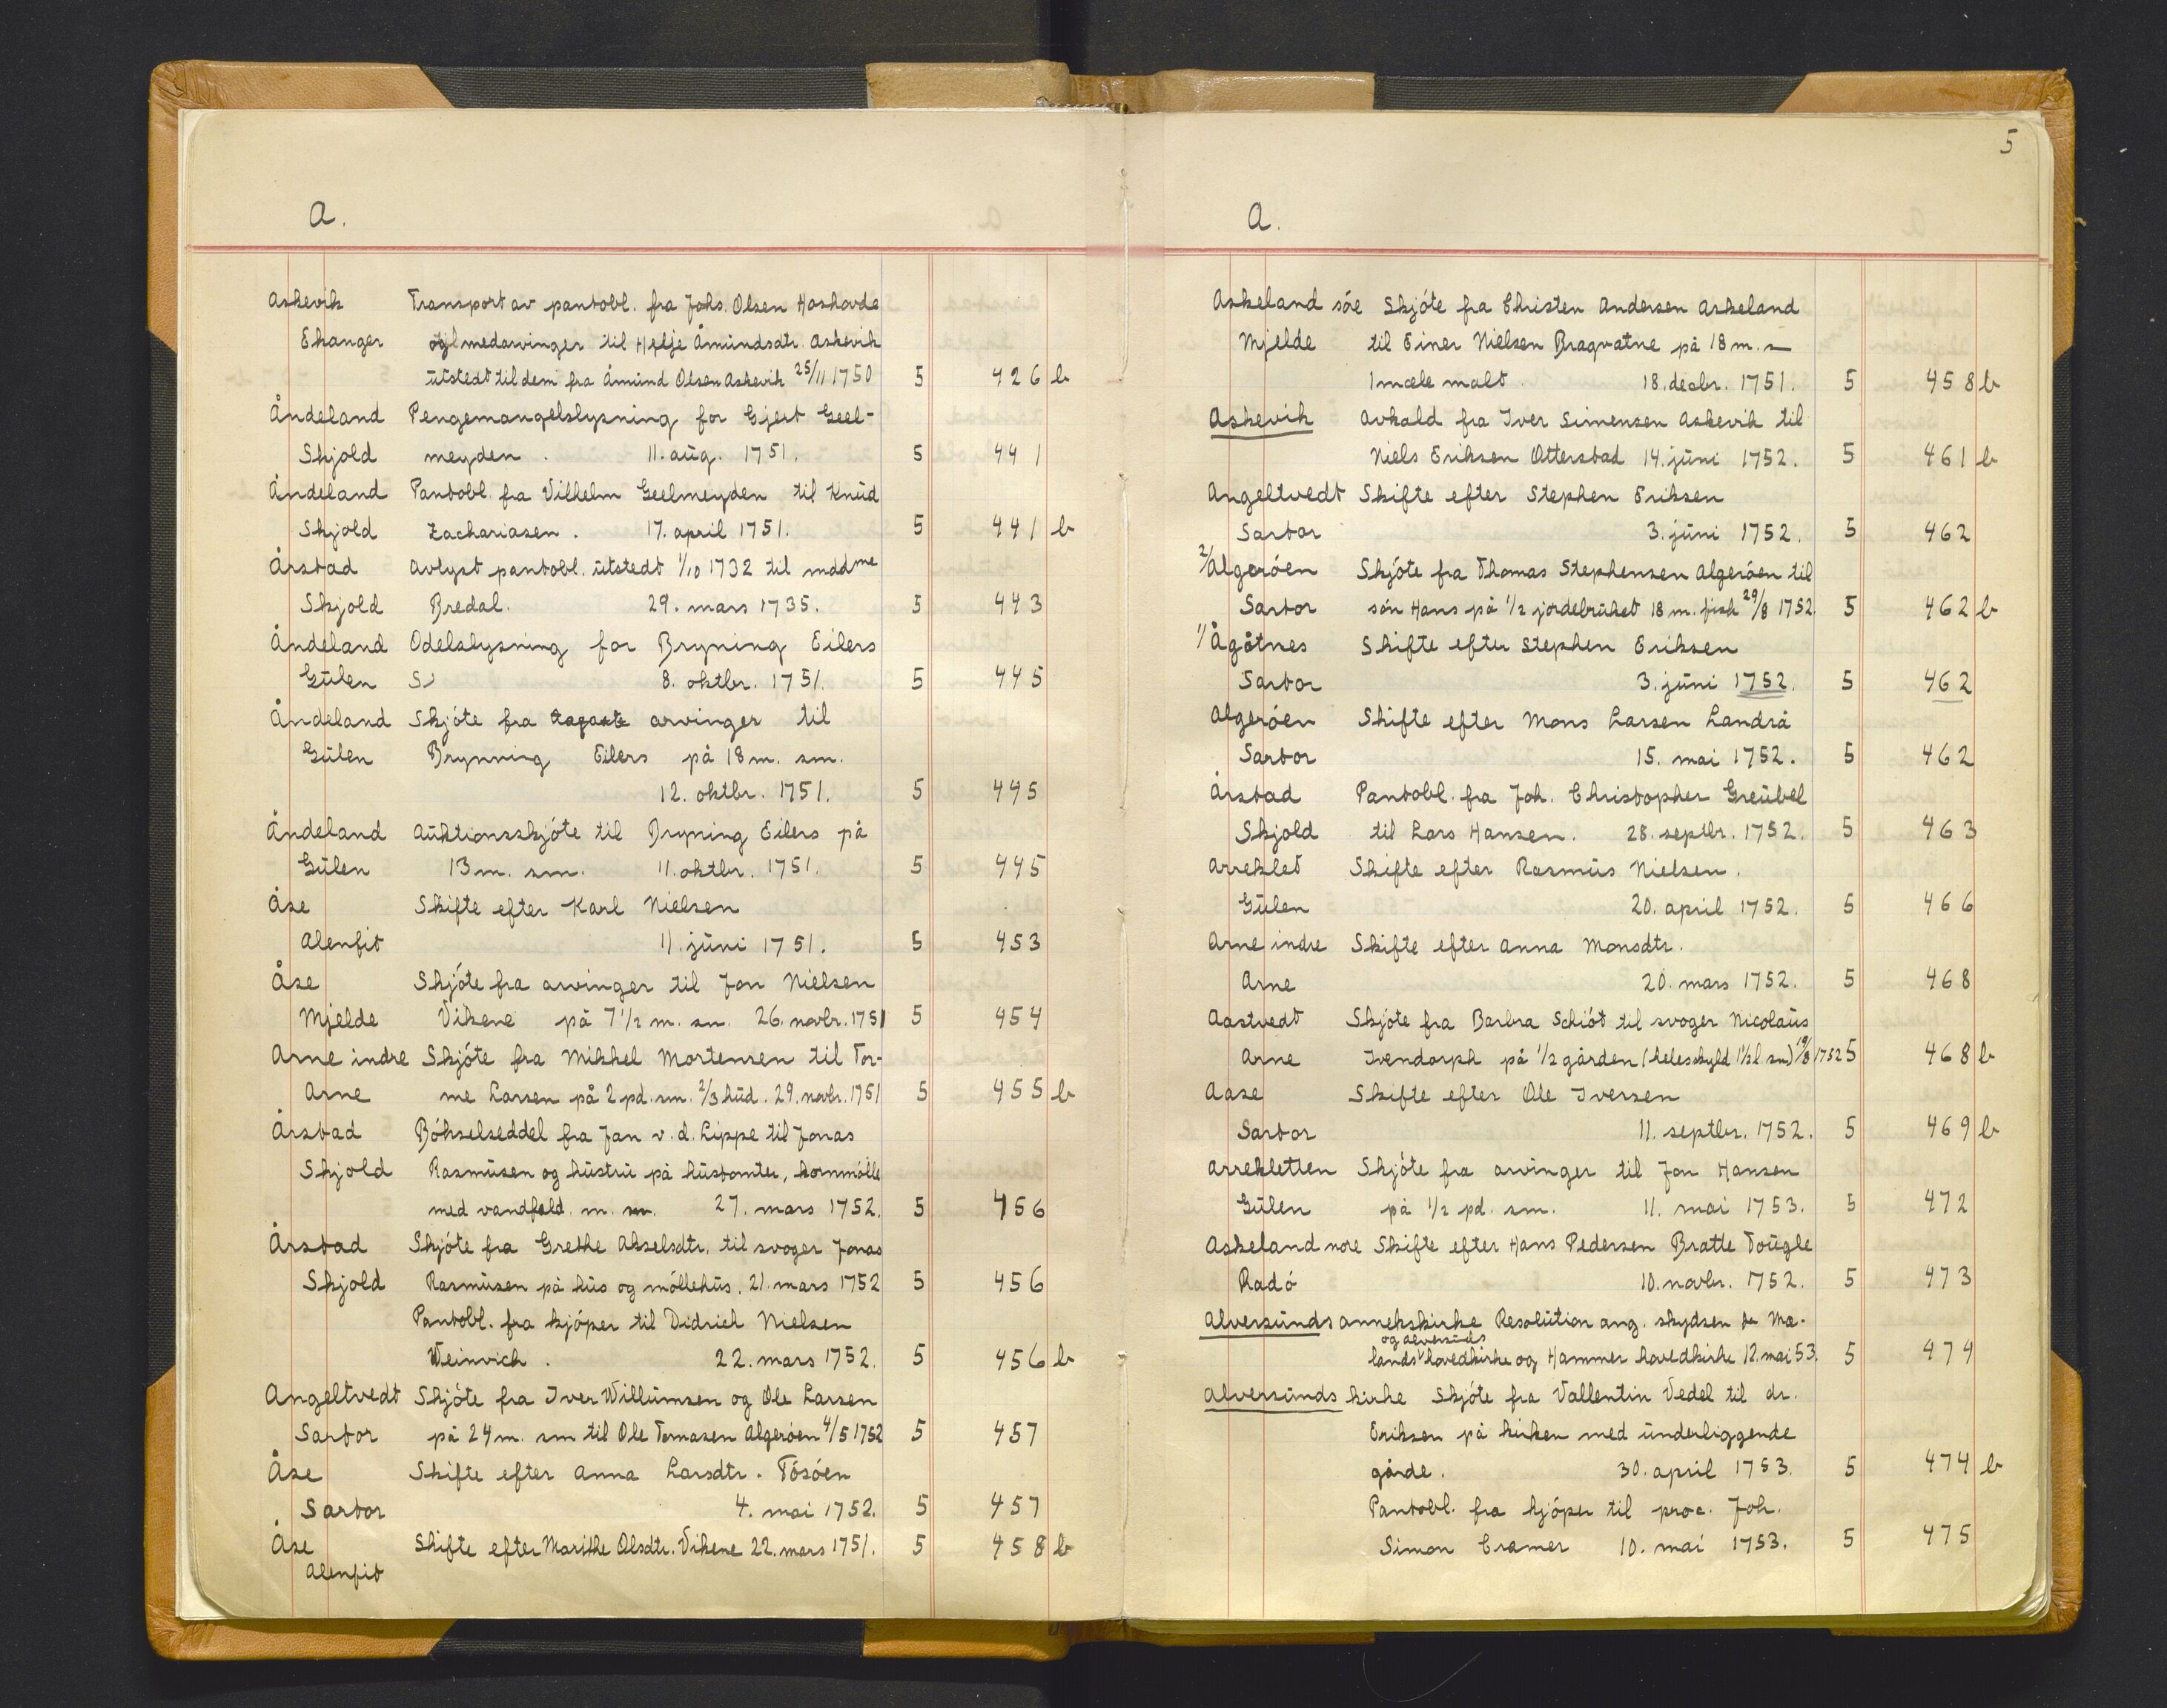 A.
Askevik Transport av pantobl. fra Johs. Olsen Haskovde
Ekanger og medarvinger til Helje Åmundsdtr. Askevik
utstedt til dem fra Åmund Olsen Askevik 25/11 1750 5 426 b
Åndeland Pengemangelslysning for Gjert Geel-
Skjold meyden . 11. aug. 1751. 5 441
Åndeland Pantobl. fra Vilhelm Geelmeyden til Knud
Skjold Zachariasen . 17. april 1751. 5 441 b
Årstad Avlyst pantobl. utstedt 1/10 1732 til mdd me
Skjold Bredal. 29. mars 1735. 5 443
Åndeland Odelslysning for Bryning Eilers
Gulen 8. oktbr. 1751. 5 445
Åndeland Skjóte fra arvinger til
Gulen Brynning Eilers på 18 m. sm.
12. oktbr. 1751. 5 445
Åndeland Auktionsskjóte til Bryning Eilers på
Gulen 13 m. sm. 11. oktbr. 1751. 5 445
Åse Skifte efter Karl Nielsen
Alenfit 11. juni 1751. 5 453
Åse Skjóte fra arvinger til Jon Nielsen
Mjelde Vikene på 7 1/2 m. sm. 26. novbr. 1751 5 454
Arne indre Skjóte fra Mikkel Mortensen til Tor-
Arne me Larsen på 2 pd. sm. 2/3 hud. 29. novbr. 1751 5 455 b
Årstad Bóhselseddel fra Jan v. d. Lippe til Jonas
Skjold Rasmusen og hustru på hustomter, kornmólle
med vandfald m. m. 27. mars 1752. 5 456
Årstad Skjóte fra Grethe Akselsdtr. til svoger Jonas
Skjold Rasmusen på hus og móllehus. 21. mars 1752 5 456
Pantobl. fra kjóper til Didrich Nielsen
Weinvich . 22. mars 1752. 5 456 b
Angeltvedt Skjóte fra Iver Willumsen og Ole Larsen
Sartor på 24 m. sm til Ole Tomasen Algeróen 4/5 1752 5 457
Åse Skifte efter Anna Larsdtr. Tósóen
Sartor 4. mai 1752. 5 457
Åse Skifte efter Marithe Olsdtr. Vikene 22. mars 1751. 5 458 b
Alenfit
5
A.
Askeland sóe Skjóte fra Christen Andersen Askeland
Mjelde til Einer Nielsen Bragvatne på 18 m. s
1 mæle malt . 18. decbr. 1751. 5 458 b
Askevik Avkald fra Iver Simensen Askevik til
Niels Eriksen Otterstad 14. juni 1752. 5 461 b
Angeltvedt Skifte efter Stephen Eriksen
Sartor 3. juni 1752. 5 462
2/ Algeróen Skjóte fra Thomas Stephensen Algeróen til
Sartor són Hans på 1/2 jordebruket 18 m. fisk 29/8 1752 5 462 b
1/ Ågåtnes Skifte efter Stephen Eriksen
Sartor 3. juni 1752. 5 462
Algeróen Skifte efter Mons Larsen Landrå
Sartor 15. mai 1752. 5 462
Årstad Pantobl. fra Joh. Christopher Greubel
Skjold til Lars Hansen. 28. septbr. 1752. 5 463
Arreklet Skifte efter Rasmus Nielsen.
Gulen 20. april 1752. 5 466
Arne indre Skifte efter Anna Monsdtr.
Arne 20. mars 1752. 5 468
Aastvedt Skjóte fra Barbra Schiót til svoger Nicolaus
Arne Ivendorph på 1/2 gården (heleskyld 1 1/2 l sm) 19/8 1752 5 468 b
Aase Skifte efter Ole Iversen
Sartor 11. septbr. 1752. 5 469 b
Arrekletten Skjóte fra arvinger til Jon Hansen
Gulen på 1/2 pd. sm. 11. mai 1753. 5 472
Askeland nore Skifte efter Hans Pedersen Bratte Tougle
Radó 10. novbr. 1752. 5 473
Alversunds annekskirke Resolution ang. skydsen Mæ-
og alversunds
lands hovedkirke og Hammer hovedkirke 12. mai 53. 5 474
Alversunds kirke Skjóte fra Vallentin Vedel til dr.
Eriksen på kirken med underliggende
gårde. 30. april 1753. 5 474 b
Pantobl. fra kjóper til proc. Joh.
Simon Cramer 10. mai 1753. 5 475